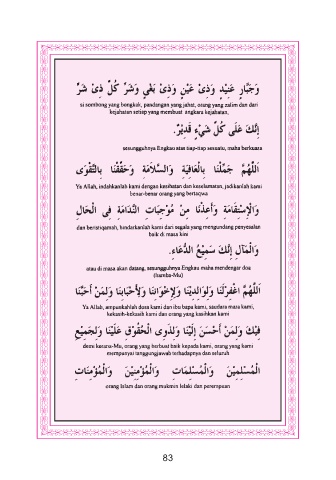 وَجَبَّارٍ عَنِيْدٍ وَذِىْ عَيْنٍ وَذِىْ بَغْيٍ وَشَرِّ كُلِّ ذِىْ شَرٍّ
si sombong yang bongkak, pandangan yang jahat, orang yang zalim dan dari
kejahatan setiap yang membuat angkara kejahatan,
اِنَّكَ عَلَى كُلِّ شَيْءٍ قَدِيْرٌ.
sesungguhnya Engkau atas tiap-tiap sesuatu, maha berkuasa
اَللَّهُمَّ جَمِّلْنَا بِالْعَافِيَةِ وَالسَّلَامَةِ وَحَقِّقْنَا بِالتَّقْوَى
Ya Allah, indahkanlah kami dengan kesihatan dan keselamatan, jadikanlah kami
benar-benar orang yang bertaqwa
وَالْاِسْتِقَامَةِ وَأَعِذْنَا مِنْ مُوْجِبَاتِ النَّدَامَةِ فِى الْحَالِ
dan beristiqamah, hindarkanlah kami dari segala yang mengundang penyesalan
baik di masa kini
وَالْمَآلِ اِنَّكَ سَمِيْعُ الدُّعَاءِ.
atau di masa akan datang, sesungguhnya Engkau maha mendengar doa
(hamba-Mu)
اَللَّهُمَّ اغْفِرْلَنَا وَلِوَالِدِيْنَا وَلِإِخْوَانِنَا وَلِأَحْبَابِنَا وَلِمَنْ أَحَبَّنَا
Ya Allah, ampunkanlah dosa kami dan ibu bapa kami, saudara mara kami,
kekasih-kekasih kami dan orang yang kasihkan kami
فِيْكَ وَلِمَنْ أَحْسَنَ اِلَيْنَا وَلِذَوِى الْحُقُوْقِ عَلَيْنَا وَلِجَمِيْعِ
demi kerana-Mu, orang yang berbuat baik kepada kami, orang yang kami
mempunyai tanggungjawab terhadapnya dan seluruh
الْمُسْلِمِيْنَ وَالْمُسْلِمَاتِ وَالْمُؤْمِنِيْنَ وَالْمُؤْمِنَاتِ
orang Islam dan orang mukmin lelaki dan perempuan
83